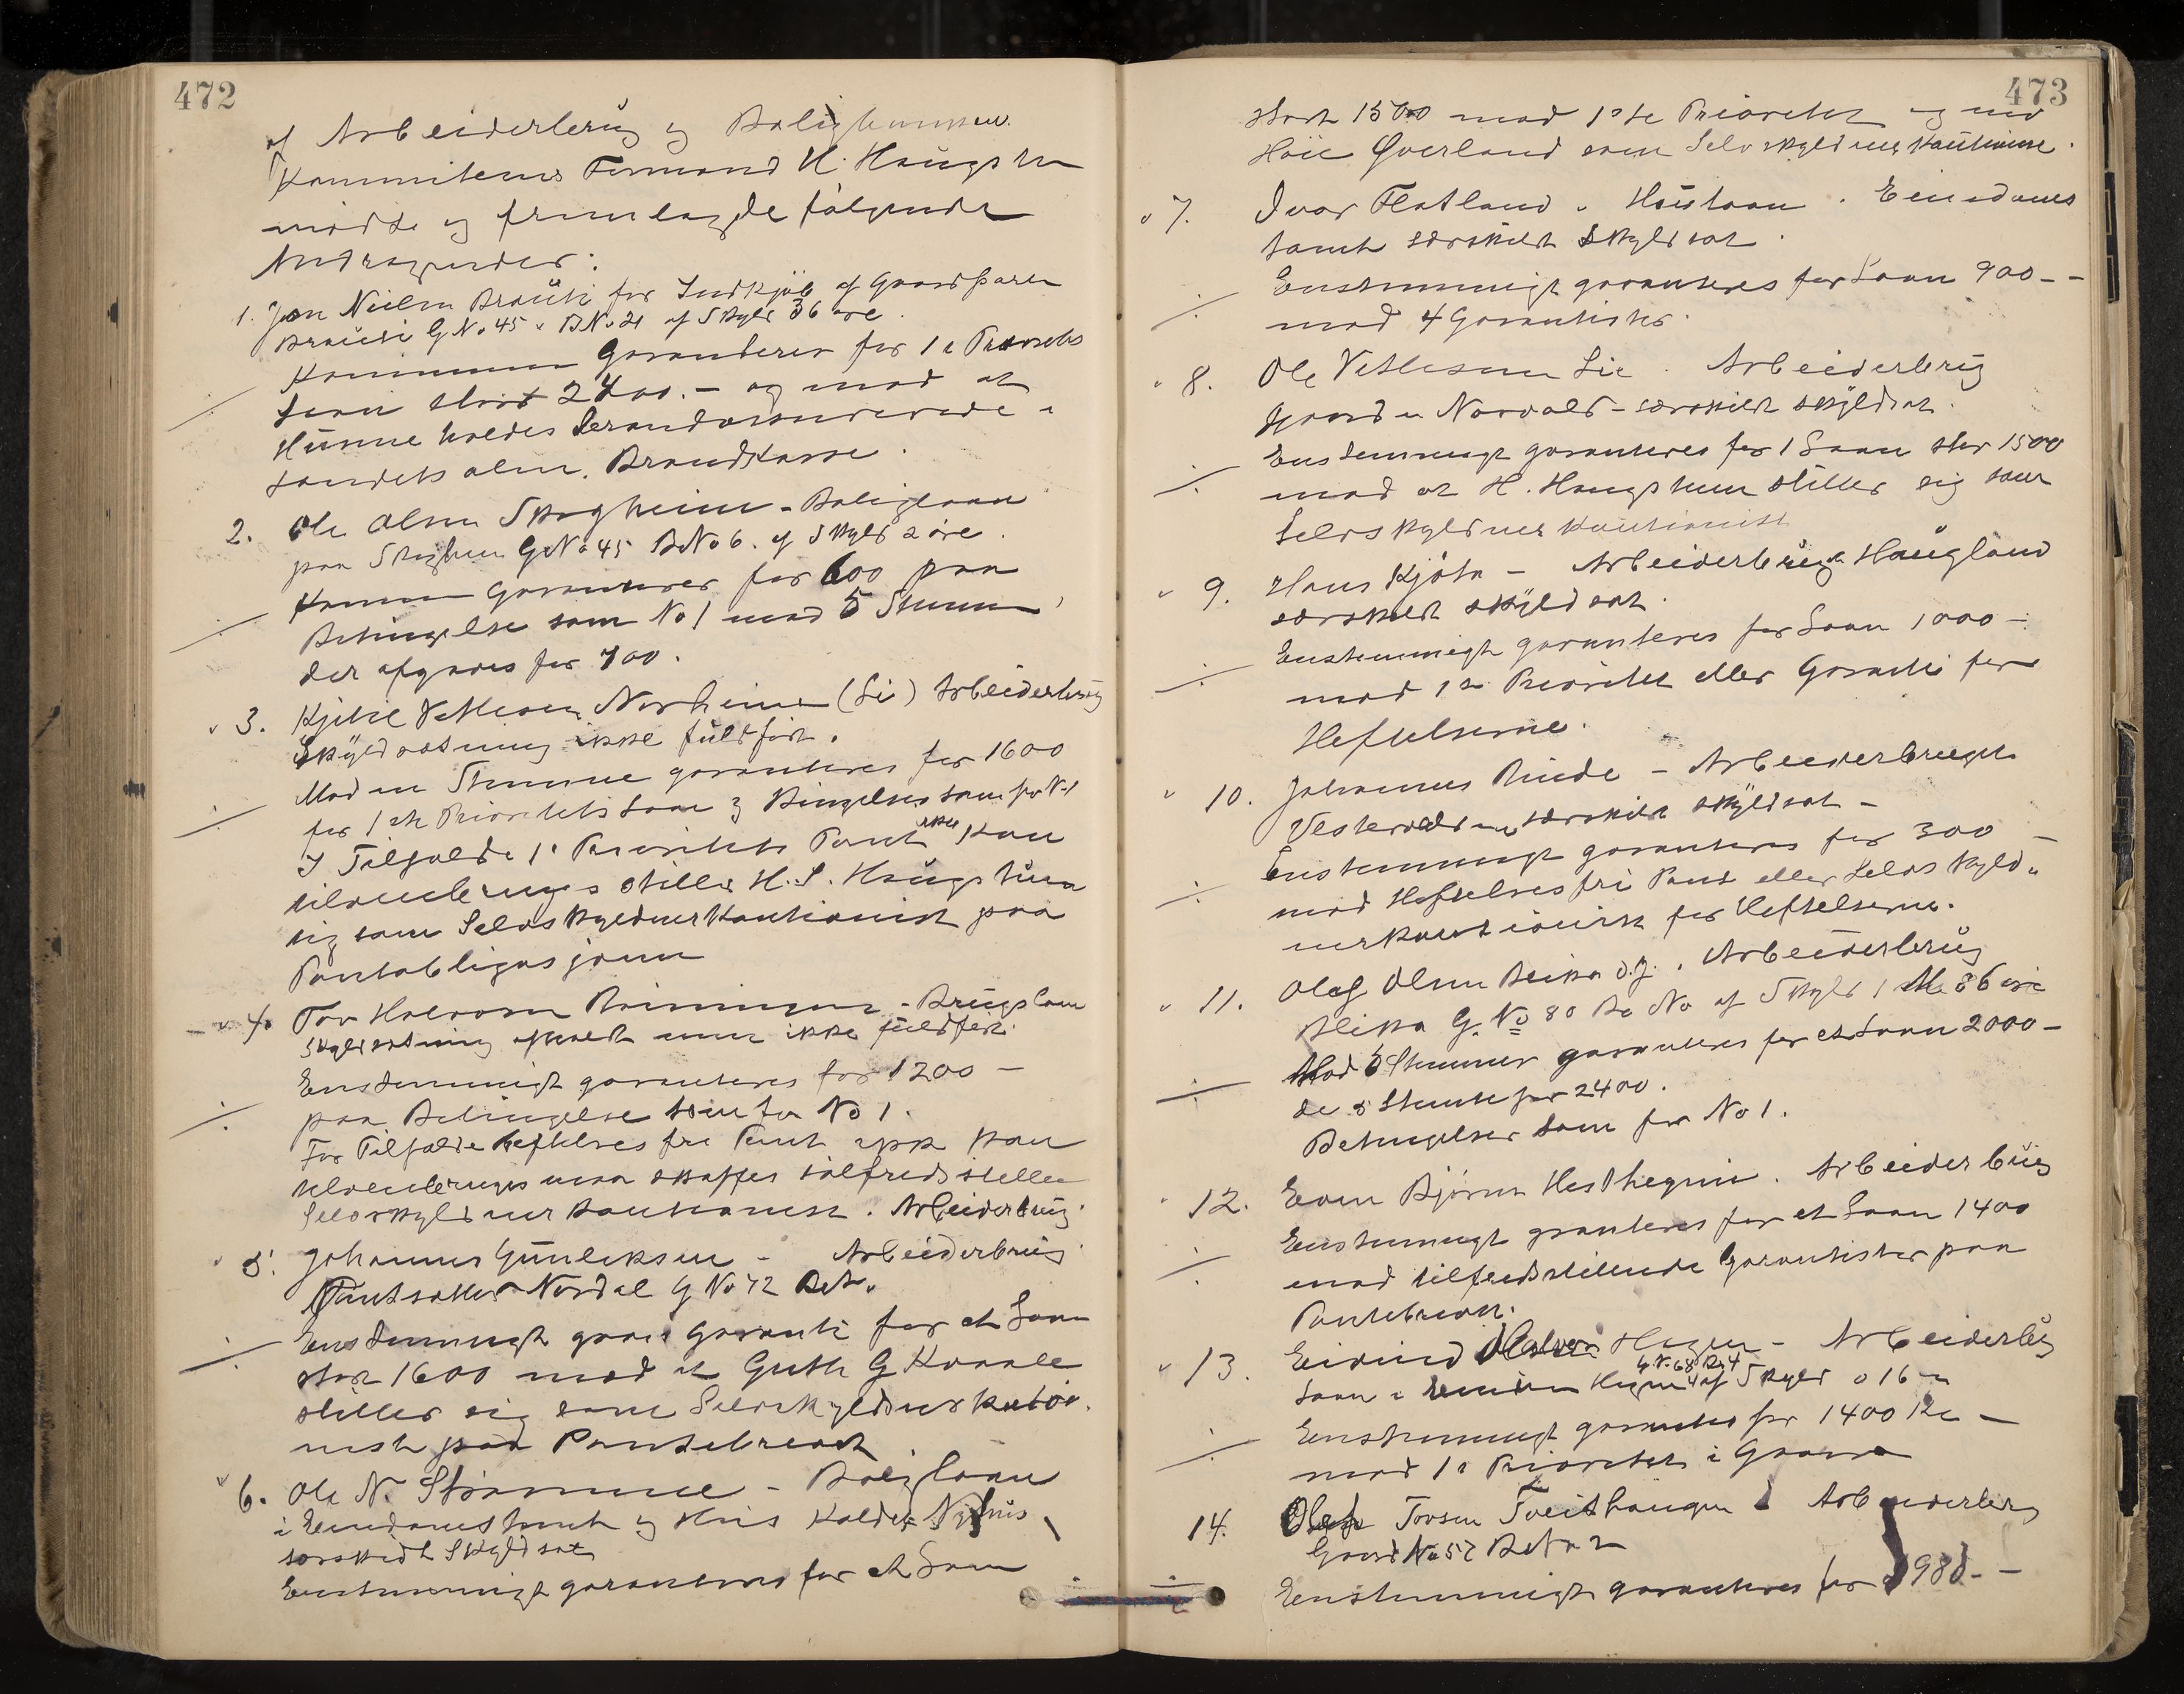 472
af Arbeiderbrug og
Kommitens Formand H. Haugstun
mødte og fremlagde følgende
Andragender:
1. Jon Nielsen Brauti for Indkjøb af Gaardparten
Brauti G No 45 B No 21 af Skyld 36 øre.
Kommunen Garanterer for 1ste Prioritets
Laan stort 2400.- og mod at
Husene holdes brandassurerede i
Landets alm. Brandkasse.
2. Ole Olsen Skogheim - Boliglaan
paa Skogheim G No 45 B No 6. af Skyld 2 øre.
Kommunen Garanterer for 600 paa
Betingelse som No 1 mod 5 Stemmer
der afgaves for 700.
3. Kjetil Vetlesen Norheim (Li) Arbeiderbrug
Skyldsætning ikke fuldført.
Mod en Stemme garanteres for 1600
for 1ste Prioritetslaan og Bingelser som for No 1
I Tilfælde 1ste Prioritets Pant ikke kan
tilveiebringes stiller H. S. Haugstun
sig som Selvskyldnerkautionist paa
Pantobligasjonen
4. Tov Halvorsen - Brugslaan
Skyldsætning afholdt men ikke fuldført.
Enstemmigt garanteres for 1200 -
paa Betingelse som for No 1.
For Tilfælde heftelses fri Pant ikke kan
tilveiebringes maa skaffes tilfredsstillende
Selvskyldner Kautionist. Arbeiderbrug.
5. Johannes Gunleksen - Arbeiderbrug
Nordal G No 72
Enstemmigt gives Garanti for et Laan
stort 1600 mod at Guth G Kovale
stiller sig som Selvskyldnerkutio-
nist paa Pantebrevet
6. Ole N. Strømme - Boliglaan
i Eiendomstomt og Hus Kaldet Nyhus
særskildt Skyldsat
Enstemmigt garanteres for et Laan
473
stort 1500 mod 1ste Prioritet og med
Høie Øverland som Selvskyldnerkautionist.
7. Ivar Flatland. Huslaan. Eiendoms
tomt særskildt Skyldsat.
Enstemmigt garanteres for Laan 900 -
mod 4 Garantister.
8. Ole Vetlesen Lie. Arbeiderbrug
Gaard særskildt skyldsat.
Enstemmigt garanteres for 1 Laan stor 1500
mod at H. Haugstun stiller sig som
Selvskyldner Kautionist
9. Hans Kjøta - Arbeiderbruget Haugland
særskildt skyldsat.
Enstemmigt garanteres for Laan 1000 -
mod 1ste Prioritet eller Garanti for
Heftelserne.
10. Johannes Rinde - Arbeiderbruget
særskildt skyldsat -
Enstemmigt garanteres for 300 -
mod Heftelsesfri Pant eller Selvskyld-
nerkautionist for Heftelserne.
11. Olaf Olsen d.y. Arbeiderbrug
G. No 80 No af Skyld 1 Mk 86 øre
Mod 5 Stemmer garanteres for et Laan 2000 -
de 5 Stemte for 2400.
Betingelser som for No 1.
12. Even Bjørnsen. Arbeiderbrug
Enstemmigt granteres for et Laan 1400
mod tilfredsstillende Garantister paa
Pantebrevet.
13. Eivind Halvor Hagen - Arbeiderbrug
G. No. 68 B 4
Laan i af Skyld 0 16
Enstemmigt garanteres for 1400 Kr -
mod 1ste Prioritet i Gaarden
14. Olaf Tovsen Tveithaugen i Arbeiderbrug
Gaard No 57 B No 2
Enstemmigt garanteres for 1980. -